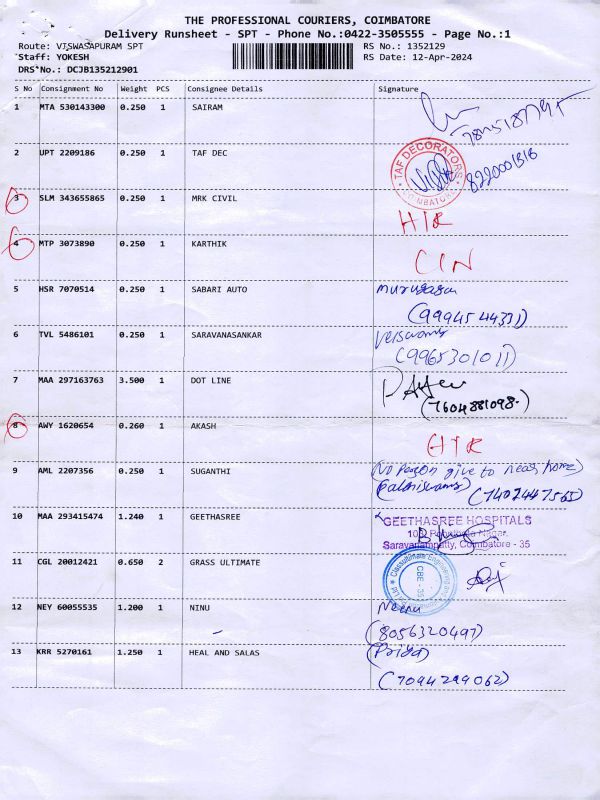 THE PROFESSIONAL COURIERS, COIMBATORE
Delivery Runsheet - SPT - Phone No.:0422-3505555 - Page No.:1
Route: VISWASAPURAM SPT
RS No.: 1352129
Staff: YOKESH
RS Date: 12-Apr-2024
DRS No.: DCJB135212901
S No Consignment No Weight PCS Consignee Details Signature
1 MTA 530143300 0.250 1 SAIRAM
2 UPT 2209186 0.250 1 TAF DEC TAF DECORATORS COIMBATORE
8220001818
3 SLM 343655865 0.250 1 MRK CIVIL
4 MTP 3073890 0.250 1 KARTHIK
CIN
5 HSR 7070514 0.250 1 SABARI AUTO Murugasan
(9994544331)
6 TVL 5486101 0.250 1 SARAVANASANKAR
(9965301011)
7 MAA 297163763 3.500 1 DOT LINE
(7604881098)
8 AWY 1620654 0.260 1 AKASH
9 AML 2207356 0.250 1 SUGANTHI (No person give to near home)
(Palaniswamy) (7402447565)
10 MAA 293415474 1.240 1 GEETHASREE GEETHASREE HOSPITALS
Nagar,
Saravanampatty, Coimbatore - 35
11 CGL 20012421 0.650 2 GRASS ULTIMATE CBE - 35
12 NEY 60055535 1.200 1 NINU Neenu
(8056320497)
13 KRR 5270161 1.250 1 HEAL AND SALAS (Priya)
(7094299062)